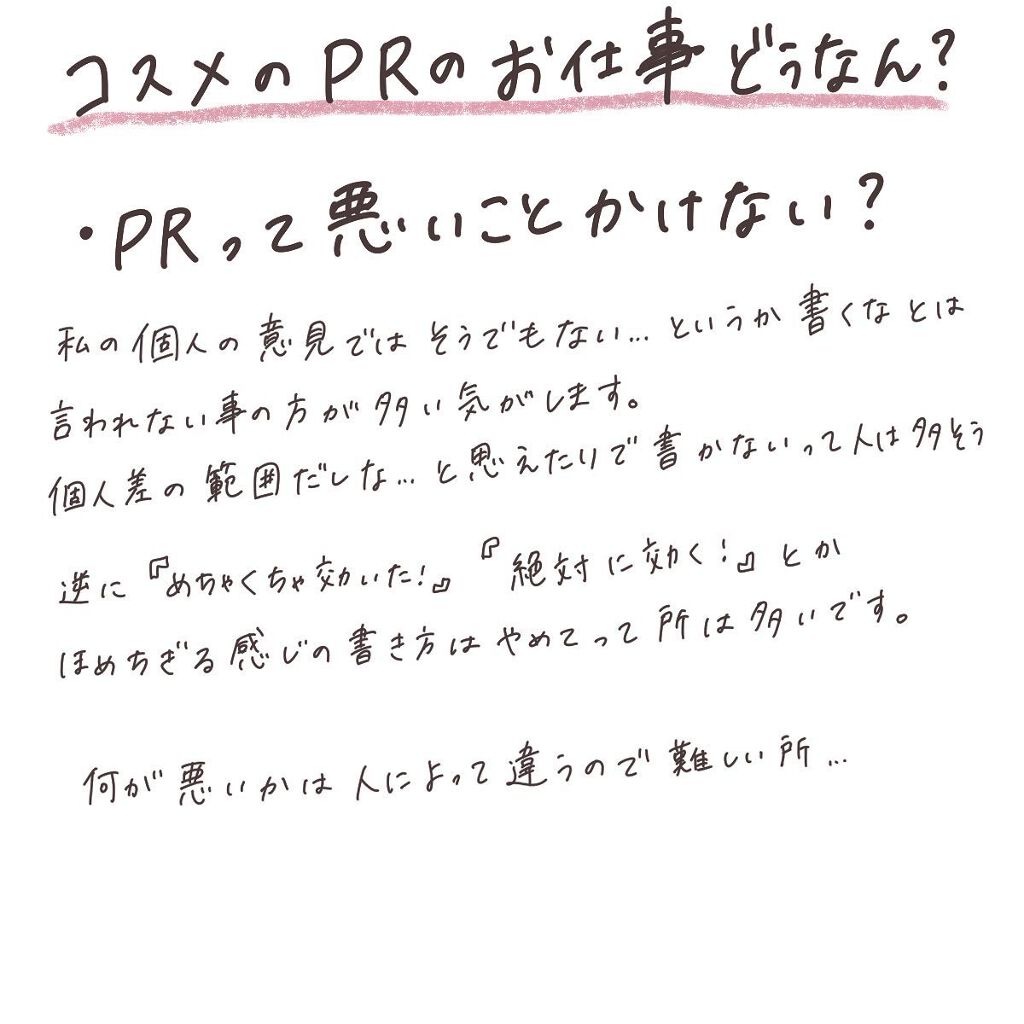 コスメのPRのお仕事どうなん?
・PRって悪いことかけない?
私の個人の意見ではそうでもない...というか書くなとは
言われない事の方が多い気がします。
個人差の範囲だしな...と思えたりで書かないって人は多そう
逆に『めちゃくちゃ効いた!』『絶対に効く!』とか
ほめちぎる感じの書き方はやめてって所は多いです。
何が悪いかは人によって違うので難しい所...